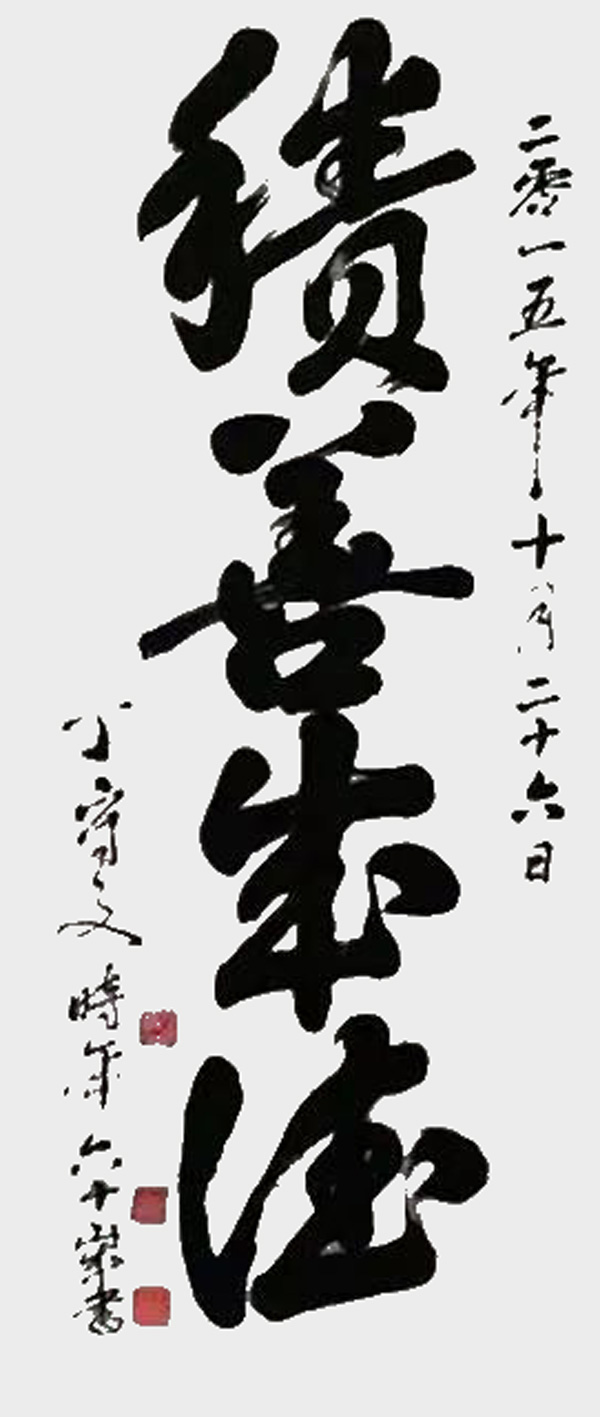 二零一五年十月二十六日
積善成德
文時年六十歲書